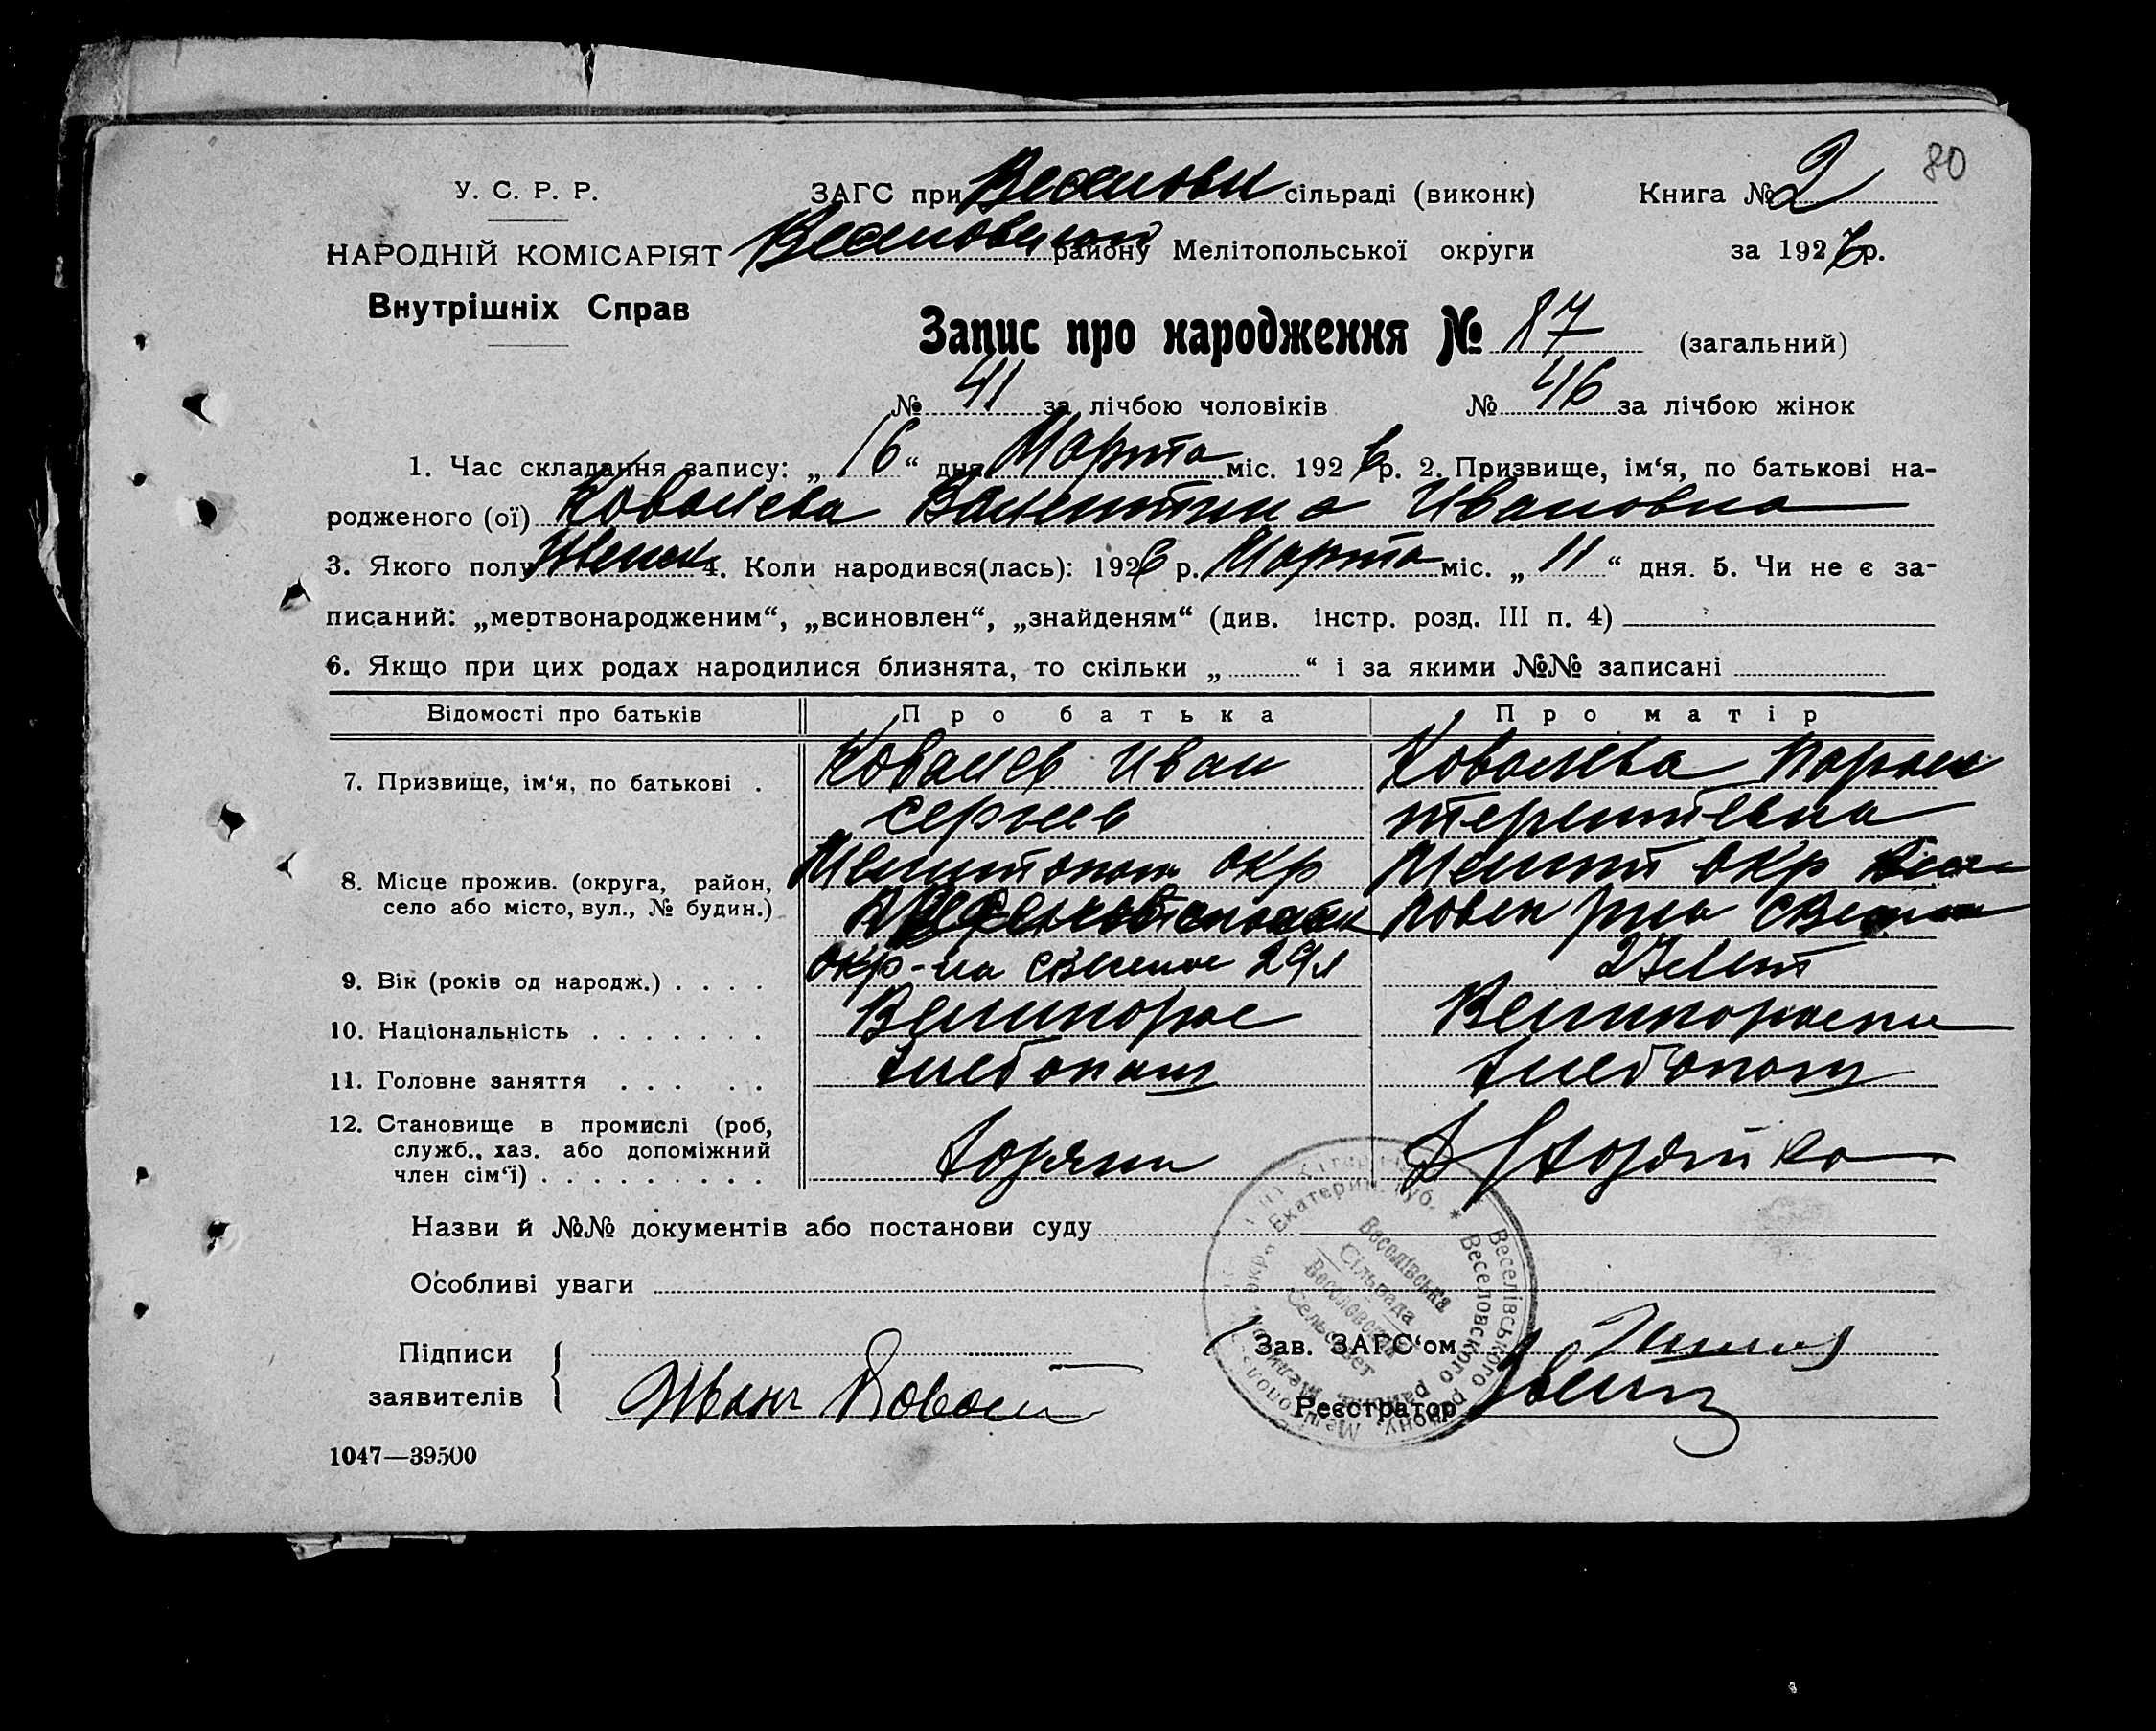 80
У. С. Р. Р.
ЗАГС при Веселовск сільраді (виконк)
Книга № 2
НАРОДНІЙ КОМІСАРІЯТ
Веселовском району Мелітопольської округи
за 1926 р.
Внутрішніх Справ
Запис про народження № 87 (загальний)
№ 41 за лічбою чоловіків № 46 за лічбою жінок
1. Час складання запису: „16“ дня Марта міс. 1926 р. 2. Призвище, ім‘я, по батькові на-
родженого (ої) Ковалева Валентина Ивановна
3. Якого полу Женск 4. Коли народився(лась): 1926 р. Марта міс. „11“ дня. 5. Чи не є за-
писаний: „мертвонародженим“, „всиновлен“, „знайденям“ (див. інстр. розд. III п. 4)
6. Якщо при цих родах народилися близнята, то скільки „ “ і за якими №№ записані
Відомості про батьків Про батька Про матір
7. Призвище, ім‘я, по батькові . Ковалев Иван Ковалева
Сергеев Терентьевна
8. Місце прожив. (округа, район, Мелитопол окр Мелит окр
село або місто, вул., № будин.)
9. Вік (років од народж.) . . . . 29 л 27 лет
10. Національність . . . . . . . Великорос
11. Головне заняття . . . . . Хлебопаш Хлебопаш
12. Становище в промислі (роб,
служб., хаз. або допоміжний
член сім‘ї) . . . . . . . . . Хозяин Хозяйка
Назви й №№ документів або постанови суду
Особливі уваги
Веселівська
Сільрада
Веселовский
Сельсовет
Веселівського району
Веселовского района
Екатерин. Губ.
Підписи
заявителів
Иван Ковал
Зав. ЗАГС‘ом
Реєстратор
1047—39500